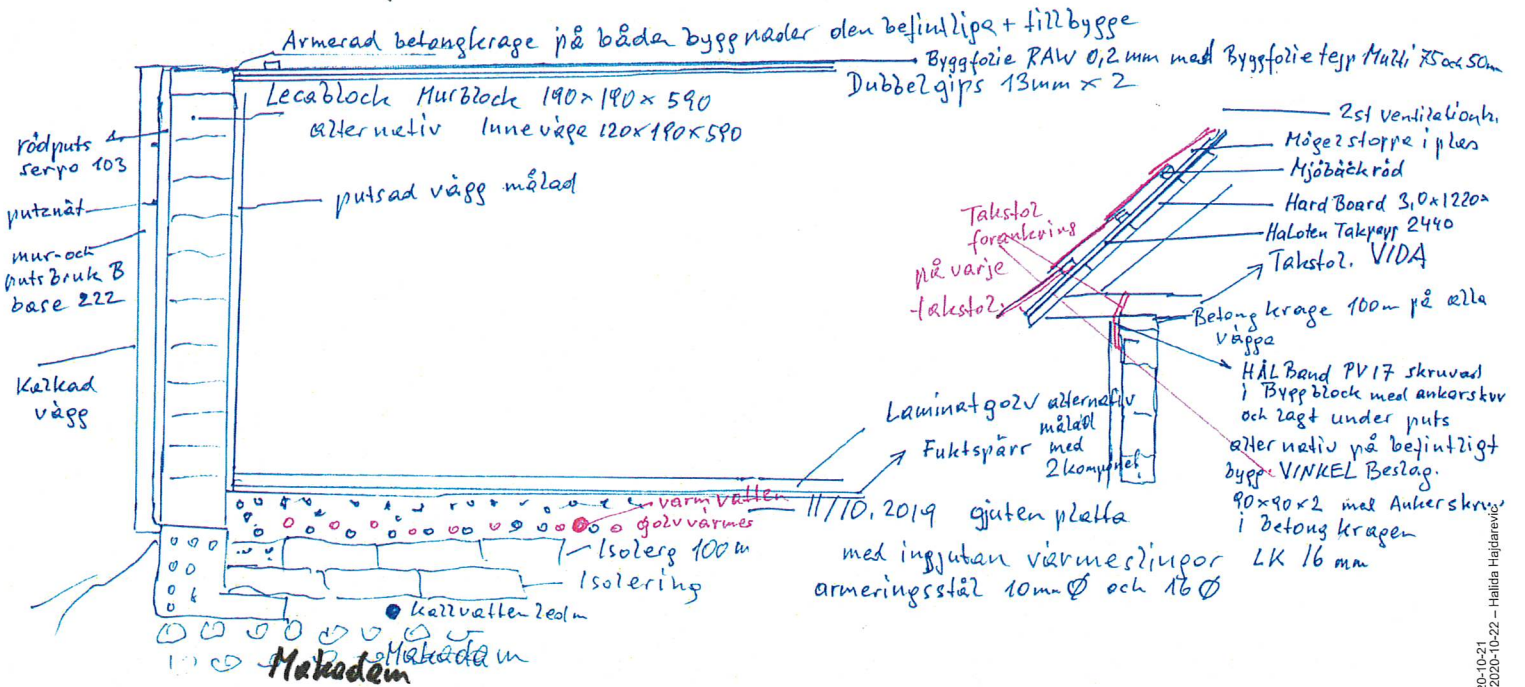 Armerad betongkrage på båda byggnader den befintliga + tillbygge
Byggfolie RAW 0,2 mm med Byggfolie tejp Multi 75 och 50m
Dubbelgips 13mm x 2
Lecablock Murblock 190x190x590
alternativ Inneväga 120x190x590
rödputs
serpo 103
putsad vägg målad
putznät
mur-och
puts bruk B
base 222
Kalkad
vägg
2st ventilationh.
Mögelstoppe i plas
Mjöbäckröd
Hard Board 3,0x1220x
Haloten Takpapp 2440
Takstol. VIDA
Takstol
forankring
på varje
takstol.
Betong krage 100m på alla
vägga
HÅL Band PV17 skruvad
i Byggblock med ankarskur
och lagt under puts
alternativ på befintligt
bygg. VINKEL Beslag.
90x90x2 med Ankerskruv
i betong kragen
Laminatgolv alternativ
målad
med
2 komponet
Fuktspärr
varmvatten
golvvärmes
11/10.2019 gjuten platta
med ingjutan värmeslingor LK 16 mm
armeringsstål 10mm Ø och 16 Ø
Isolerg 100m
Isolering
kallvatten
Makadam
Makadam
20-10-21
2020-10-22 – Halida Hajdarevic